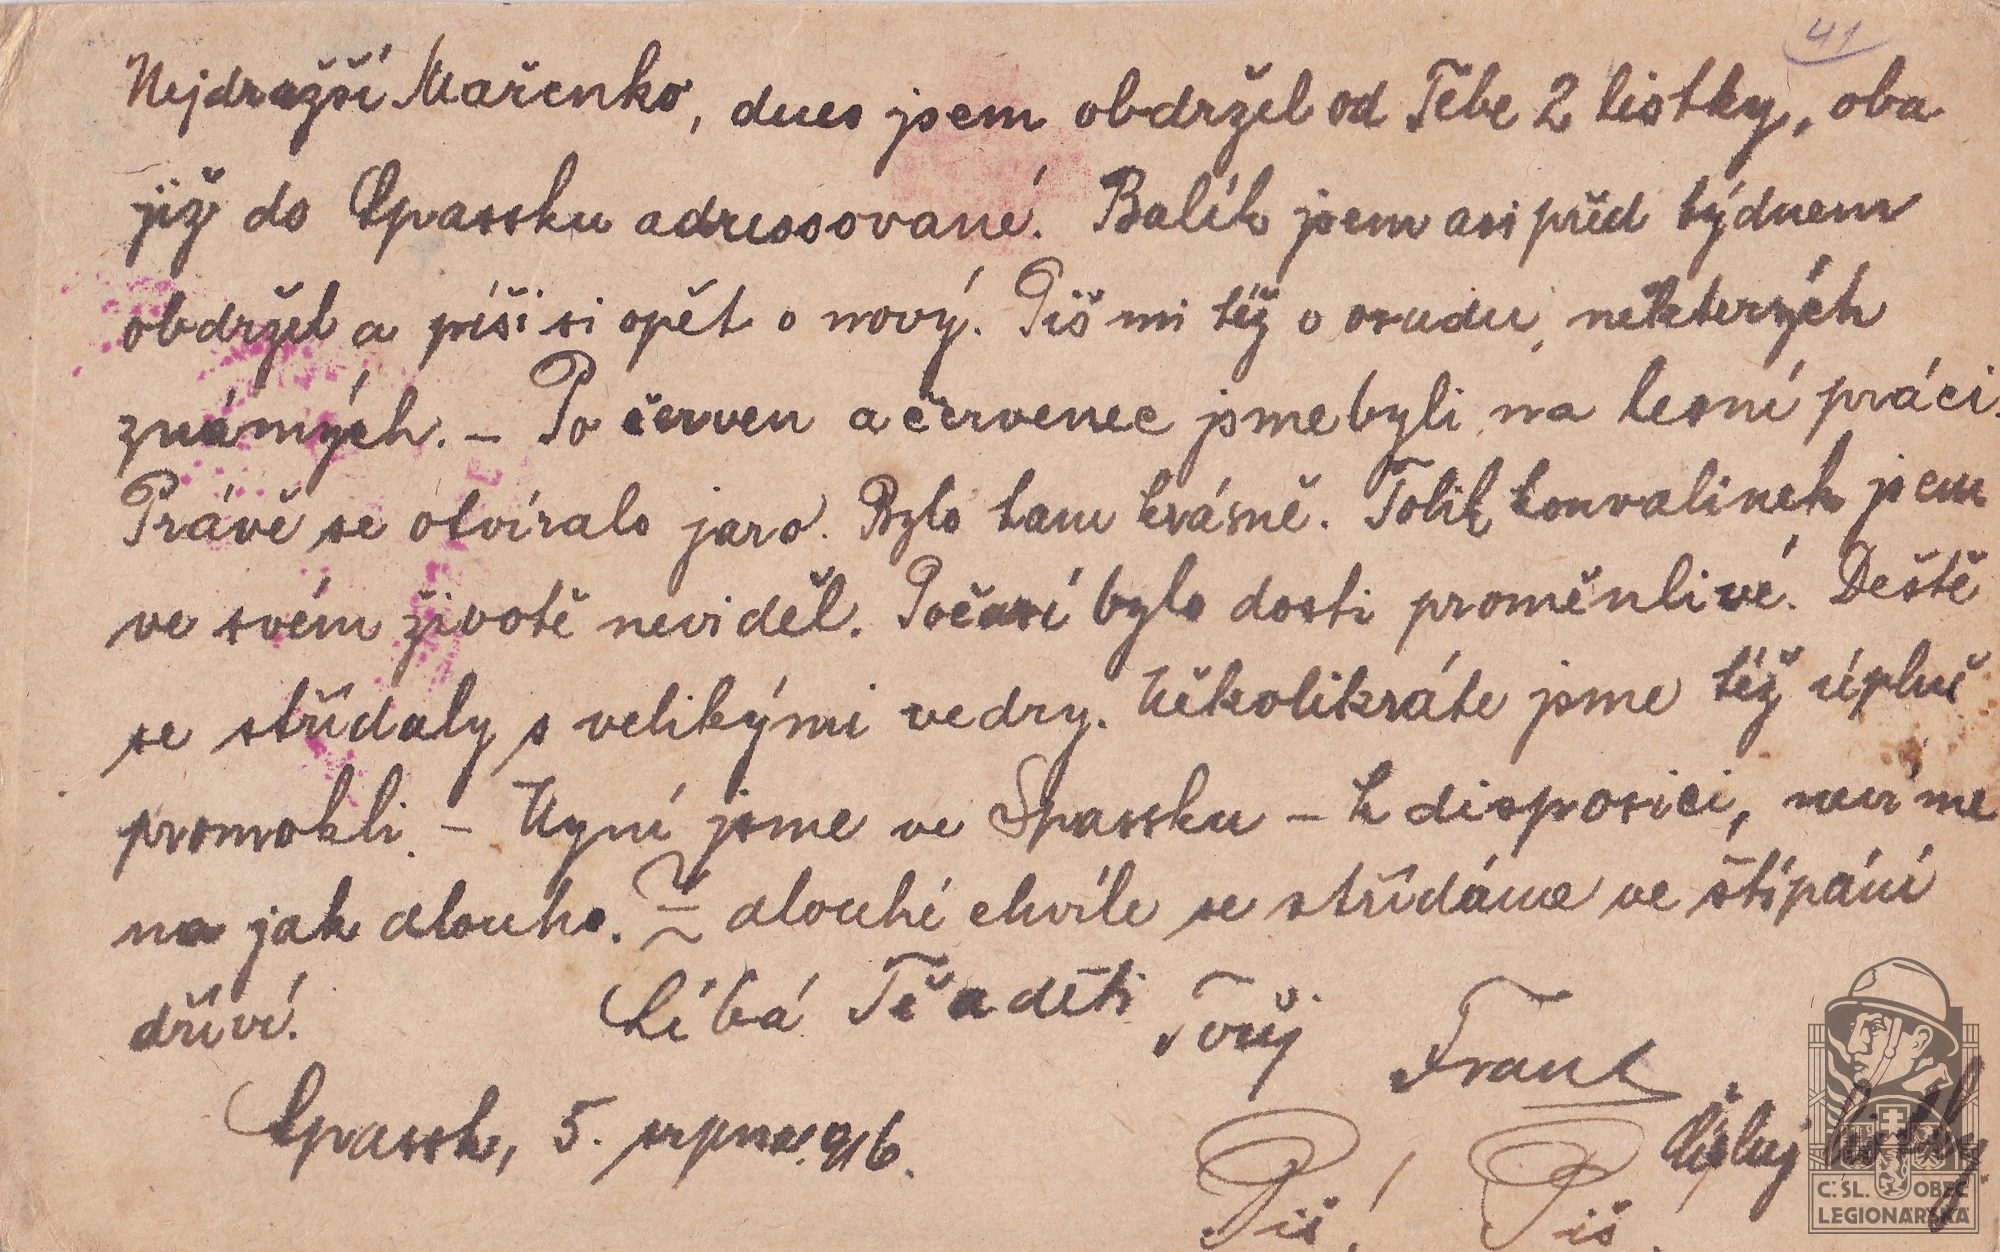 41
Nejdražší Mařenko, dnes jsem obdržel od Tebe 2 lístky, oba
již do Spassku adressované. Balík jsem asi před týdnem
obdržel a píši si opět o nový. Piš mi též o osudu některých
známých. – Po červen a červenec jsme byli na lesní práci.
Právě se otvíralo jaro. Bylo tam krásně. Tolik konvalinek jsem
ve svém životě neviděl. Počasí bylo dosti proměnlivé. Deště
se střídaly s velikými vedry. Několikráte jsme též úplně
promokli. – Nyní jsme ve Spassku – k disposici, nevíme
na jak dlouho. Z dlouhé chvíle se střídáme ve štípání
dříví. Líbá Tě a děti Tvůj Frant
Spassk, 5. srpna 916.
Piš! Piš! Čísluj lístky
Č: SL. OBEC
LEGIONÁŘSKÁ